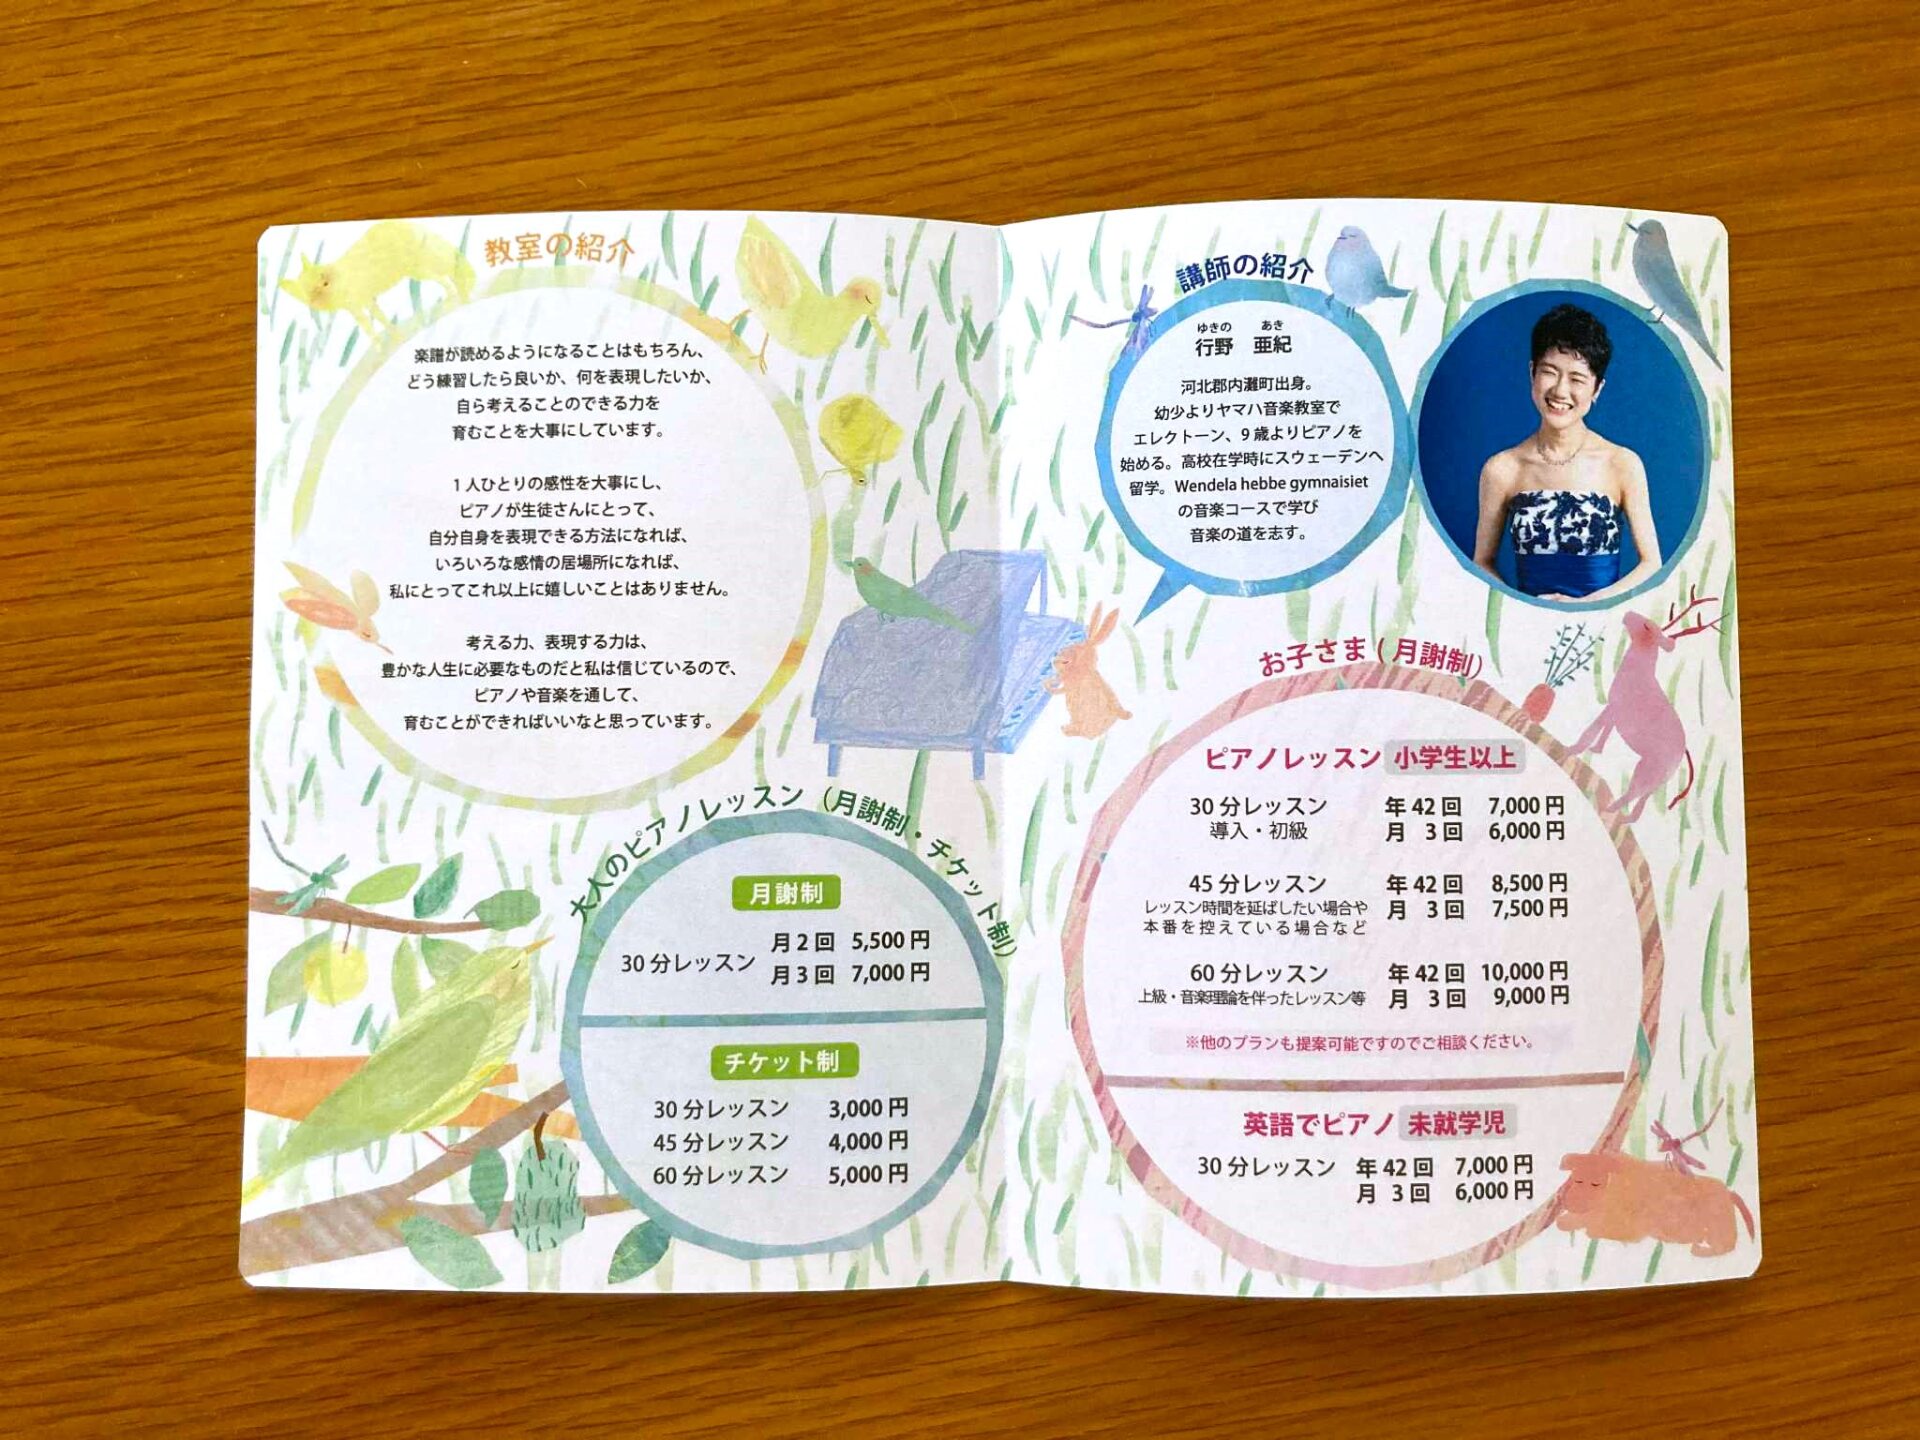 教室の紹介
楽譜が読めるようになることはもちろん、
どう練習したら良いか、何を表現したいか、
自ら考えることのできる力を
育むことを大事にしています。
1人ひとりの感性を大事にし、
ピアノが生徒さんにとって、
自分自身を表現できる方法になれば、
いろいろな感情の居場所になれば、
私にとってこれ以上に嬉しいことはありません。
考える力、表現する力は、
豊かな人生に必要なものだと私は信じているので、
ピアノや音楽を通して、
育むことができればいいなと思っています。
大人のピアノレッスン（月謝制・チケット制）
月謝制
30分レッスン
月2回 5,500円
月3回 7,000円
チケット制
30分レッスン 3,000円
45分レッスン 4,000円
60分レッスン 5,000円
講師の紹介
ゆきの あき
行野 亜紀
河北郡内灘町出身。
幼少よりヤマハ音楽教室で
エレクトーン、9歳よりピアノを
始める。高校在学時にスウェーデンへ
留学。Wendela hebbe gymnaisiet
の音楽コースで学び
音楽の道を志す。
お子さま（月謝制）
ピアノレッスン 小学生以上
30分レッスン 年42回 7,000円
導入・初級 月 3回 6,000円
45分レッスン 年42回 8,500円
レッスン時間を延ばしたい場合や 月 3回 7,500円
本番を控えている場合など
60分レッスン 年42回 10,000円
上級・音楽理論を伴ったレッスン等 月 3回 9,000円
※他のプランも提案可能ですのでご相談ください。
英語でピアノ 未就学児
30分レッスン 年42回 7,000円
月 3回 6,000円